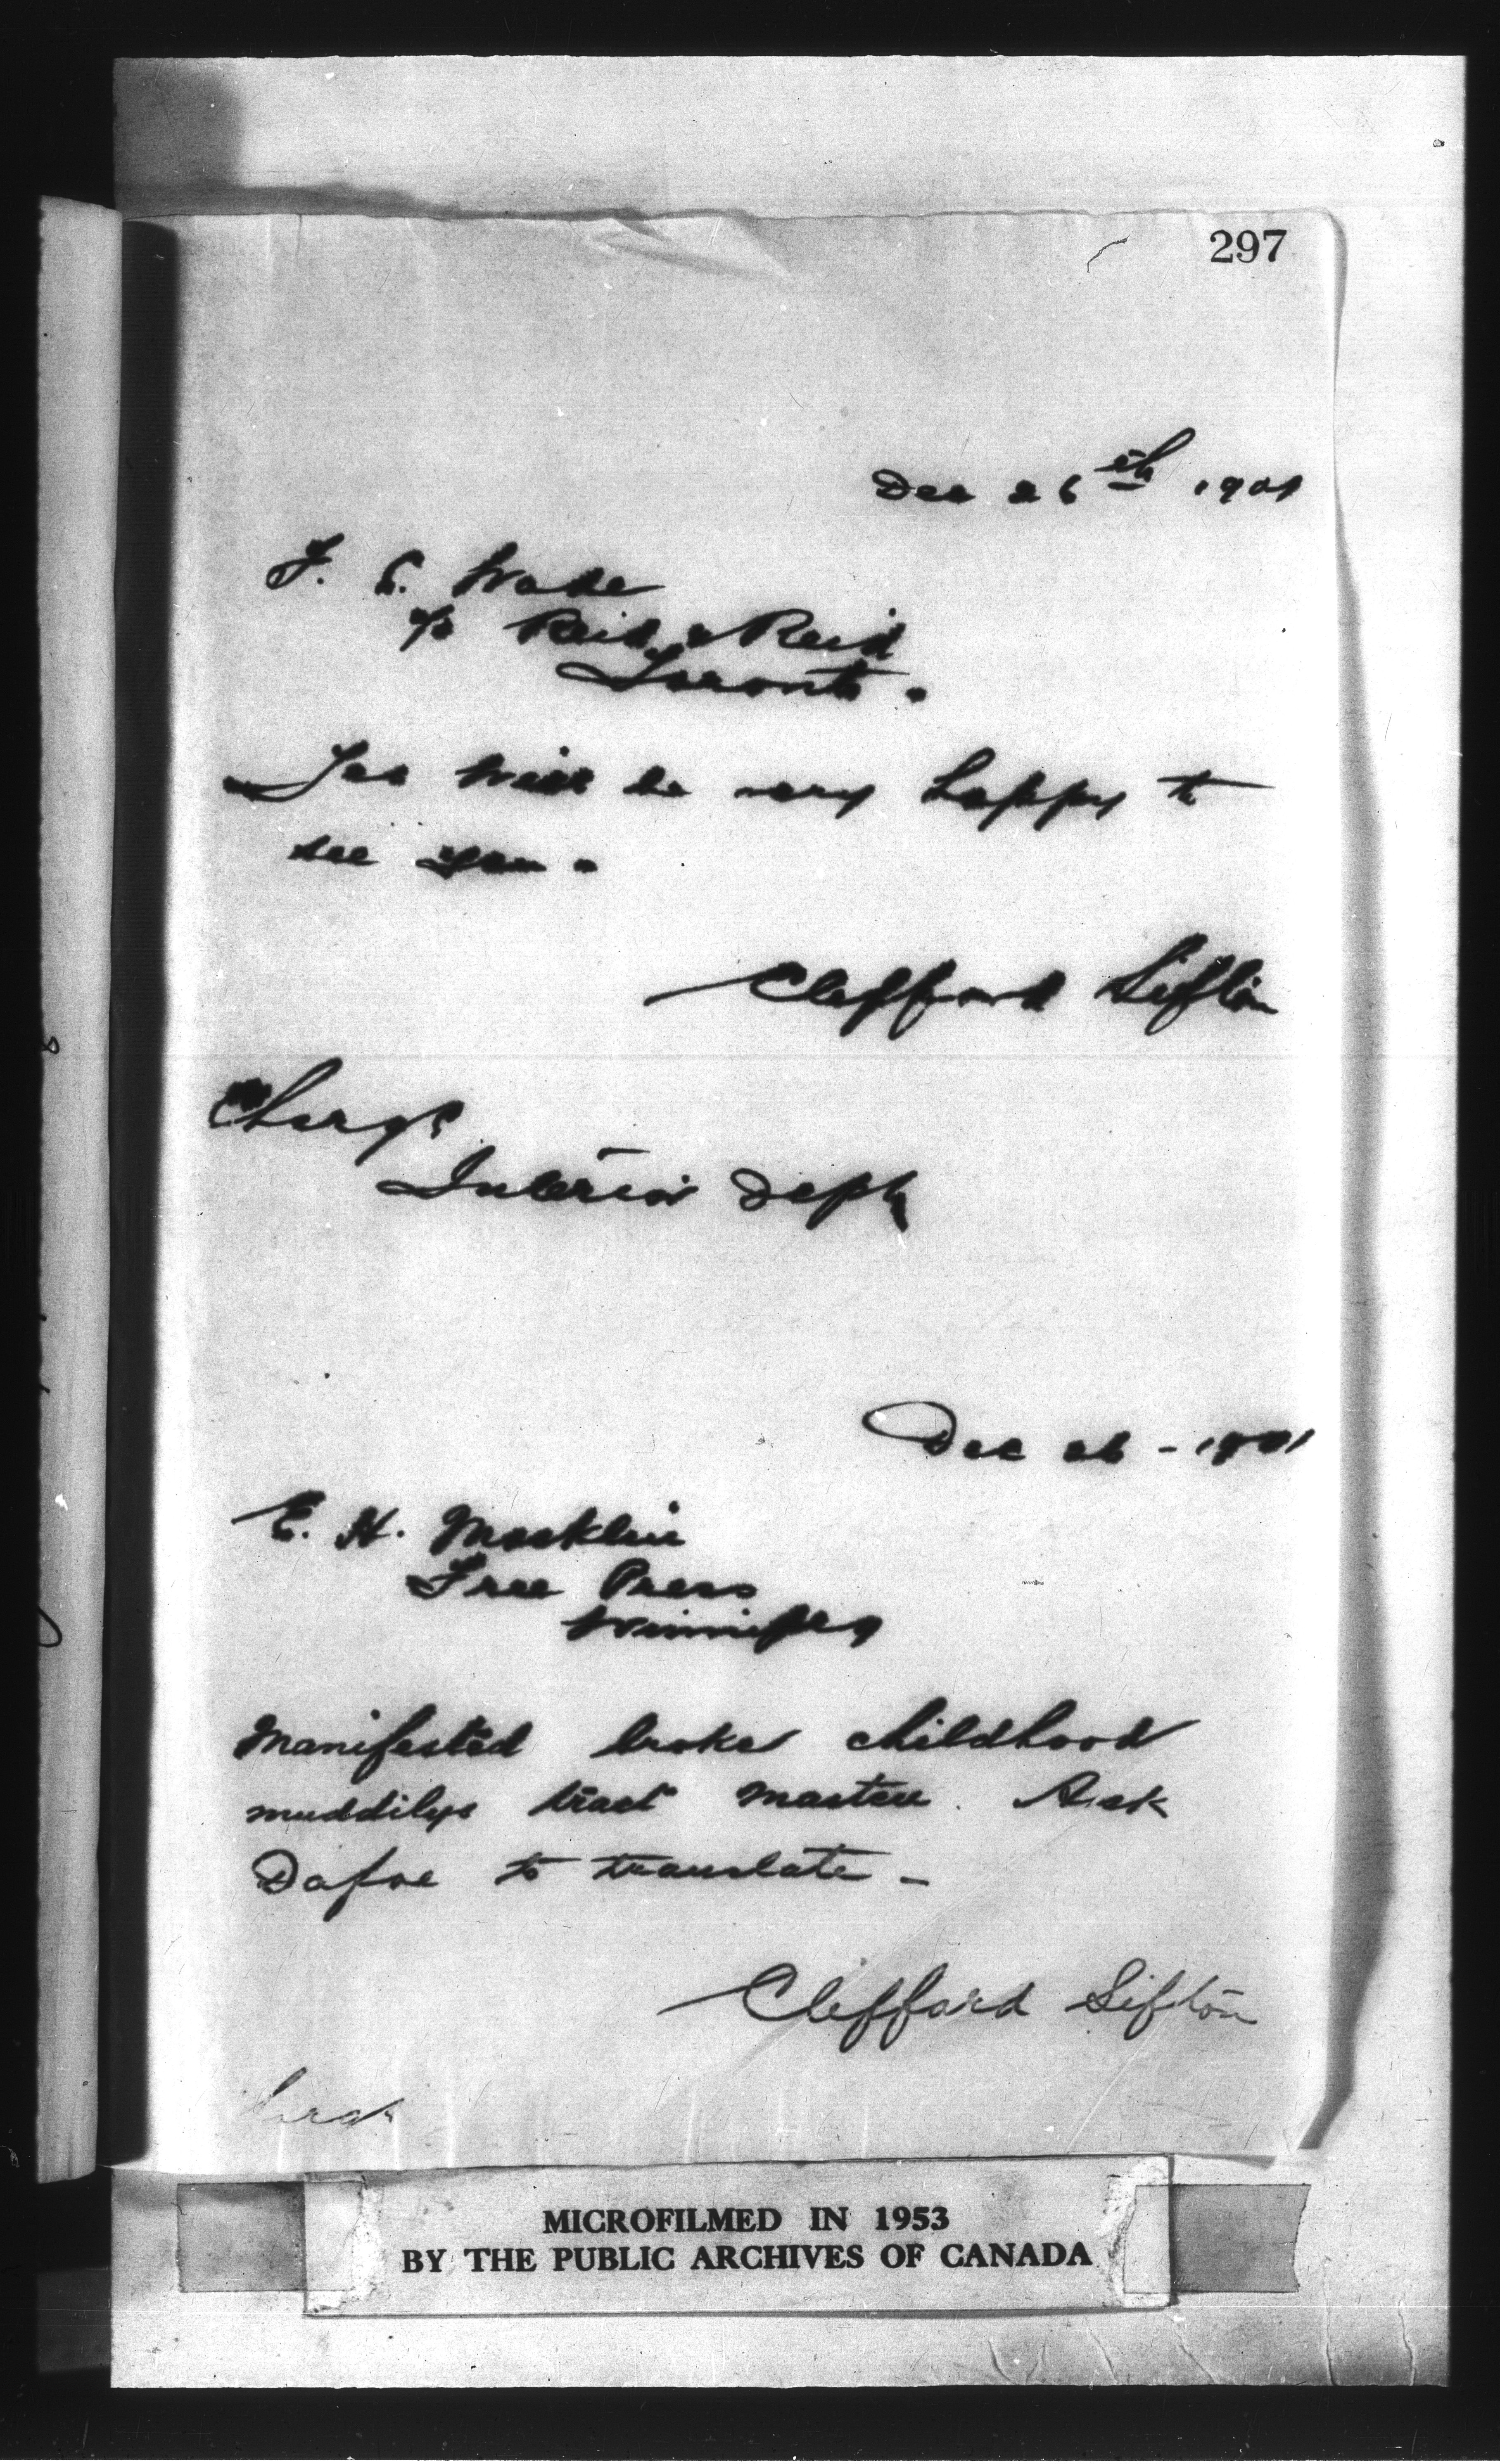 297
Dec 26th 1901
F. C. Wade
c/o Reid & Reid
Toronto.
Yes will be very happy to
see you.
Clifford Sifton
Charge
Interior Dept
Dec 26 - 1901
E. H. Macklin
Free Press
Winnipeg
Manifested broke childhood
muddilys tract master. Ask
Dafoe to translate -
Clifford Sifton
MICROFILMED IN 1953
BY THE PUBLIC ARCHIVES OF CANADA